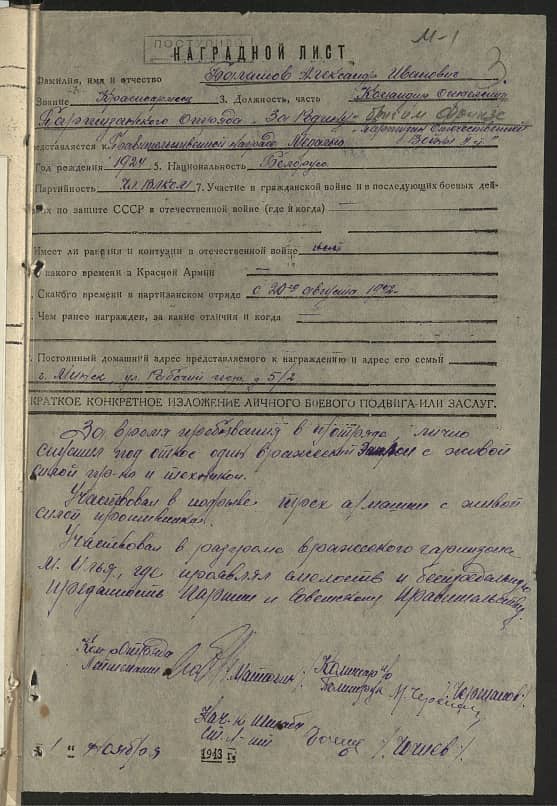 ПОСТУПИЛО
М-1
3.
НАГРАДНОЙ ЛИСТ
Фамилия, имя и отчество Александр Иванович
Звание Красноармеец 3. Должность, часть Командир отделения
Партизанского отряда „За Родину“ бригады Фрунзе
„Партизану Отечественной
редставляется к Правительственной награде Медалью Войны II ст“
Год рождения 1924 5. Национальность Белорус
Партийность чл. ВЛКСМ 7. Участие в гражданской войне и в последующих боевых дей-
иях по защите СССР в отечественной войне (где и когда) —
Имеет ли ранения и контузии в отечественной войне нет
какого времени в Красной Армии —
С какого времени в партизанском отряде с 20го августа 1942г.
Чем ранее награжден, за какие отличия и когда —
Постоянный домашний адрес представляемого к награждению и адрес его семьи
г. Минск, ул. Рабочий д 5/2
КРАТКОЕ КОНКРЕТНОЕ ИЗЛОЖЕНИЕ ЛИЧНОГО БОЕВОГО ПОДВИГА ИЛИ ЗАСЛУГ.
За время пребывания в п/отряде лично
спустил под откос один вражеский эшелон с живой
силой пр-ка и техникой.
Участвовал в подрыве трех автомашин с живой
силой противника.
Участвовал в разгроме вражеского гарнизона
М. Илья, где проявлял смелость и беспредельную
преданность Партии и Советскому Правительству.
Ком-р Отряда
Комиссар п/о
Нач-к штаба
Ст. л-нт
„1“ ноября 1943 г.